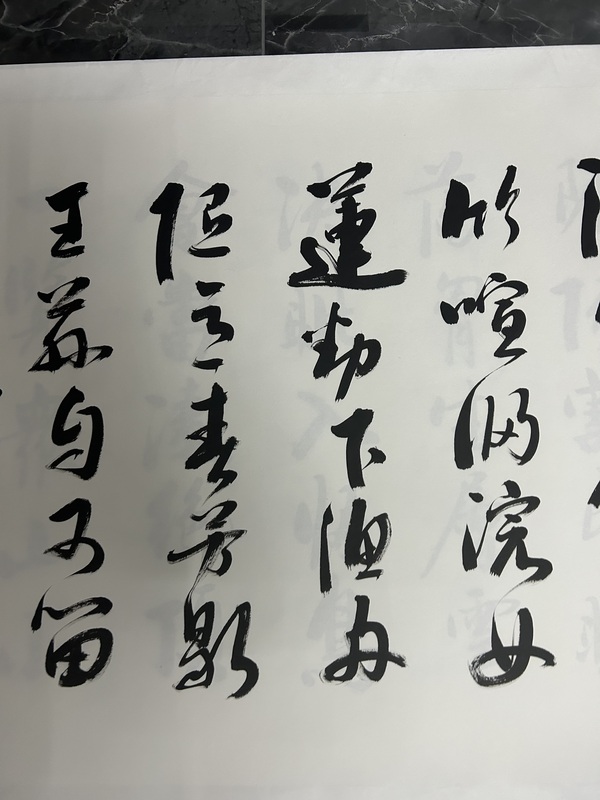 竹喧归浣女
莲动下渔舟
随意春芳歇
王孙自可留